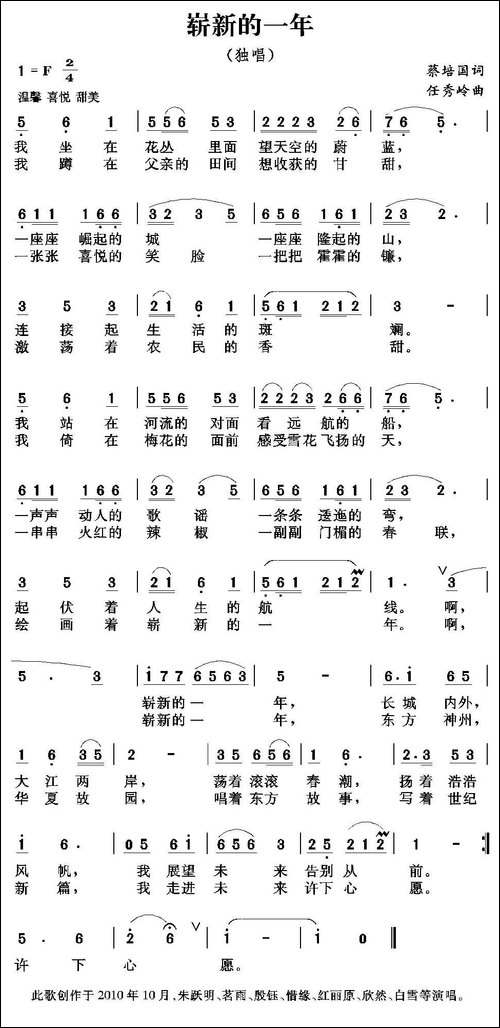 崭新的一年
(独唱)
1=F 2/4
蔡培国词
温馨 喜悦 甜美
任秀岭曲
5 6 1 | 5 5 6 5 3 | 2 2 2 3 2 6 | 7 6 5 · |
我 坐 在 花丛 里面 望天空的 蔚 蓝,
我 蹲 在 父亲的 田间 想收获的 甘 甜,
6 1 1 1 6 6 | 3 2 3 5 | 5 5 6 1 6 1 | 2 3 2 · |
一座座 崛起的 城 一座座 隆起的 山,
一张张 喜悦的 笑 脸 一把把 霍霍的 镰,
3 5 3 | 2 1 6 1 | 5 6 1 2 1 2 | 3 - |
连 接 起 生 活 的 斑 斓。
激 荡 着 农 民 的 香 甜。
5 6 1 | 5 5 6 5 3 | 2 2 2 3 2 6 6 | 7 6 5 · |
我 站 在 河流的 对面 看 远 航的 船,
我 倚 在 梅花的 面前 感受雪花 飞扬的 天,
6 1 1 1 6 6 | 3 2 3 5 | 5 5 6 1 6 1 | 2 3 2 · |
一声声 动人的 歌 谣 一条条 逶迤的 弯,
一串串 火红的 辣 椒 一副副 门楣的 春 联,
3 5 3 | 2 1 6 1 | 5 6 1 2 1 2 | 1 · 3 |
起 伏 着 人 生 的 航 线。 啊,
绘 画 着 崭 新 的 一 年。 啊,
5 · 3 | 1 7 7 6 5 6 3 | 5 - | 6 · 1 6 5 |
崭新的 一 年, 长 城 内外,
崭新的 一 年, 东 方 神州,
1 6 3 5 | 2 - | 3 5 5 6 | 1 6 · | 2 · 3 5 3 |
大 江 两 岸, 荡着 滚滚 春 潮, 扬 着 浩浩
华 夏 故 园, 唱着 东方 故 事, 写 着 世纪
1 6 · | 0 5 6 1 | 5 5 6 3 | 2 5 2 1 2 | 1 - :|
风 帆, 我 展望 未 来 告别 从 前。
新 篇, 我 走进 未 来 许下 心 愿。
5 · 6 | 2 6 | 1 - | 1 0 |
许 下 心 愿。
此歌创作于 2010 年 10 月,朱跃明、茗雨、殷钰、惜缘、红丽原、欣然、白雪等演唱。